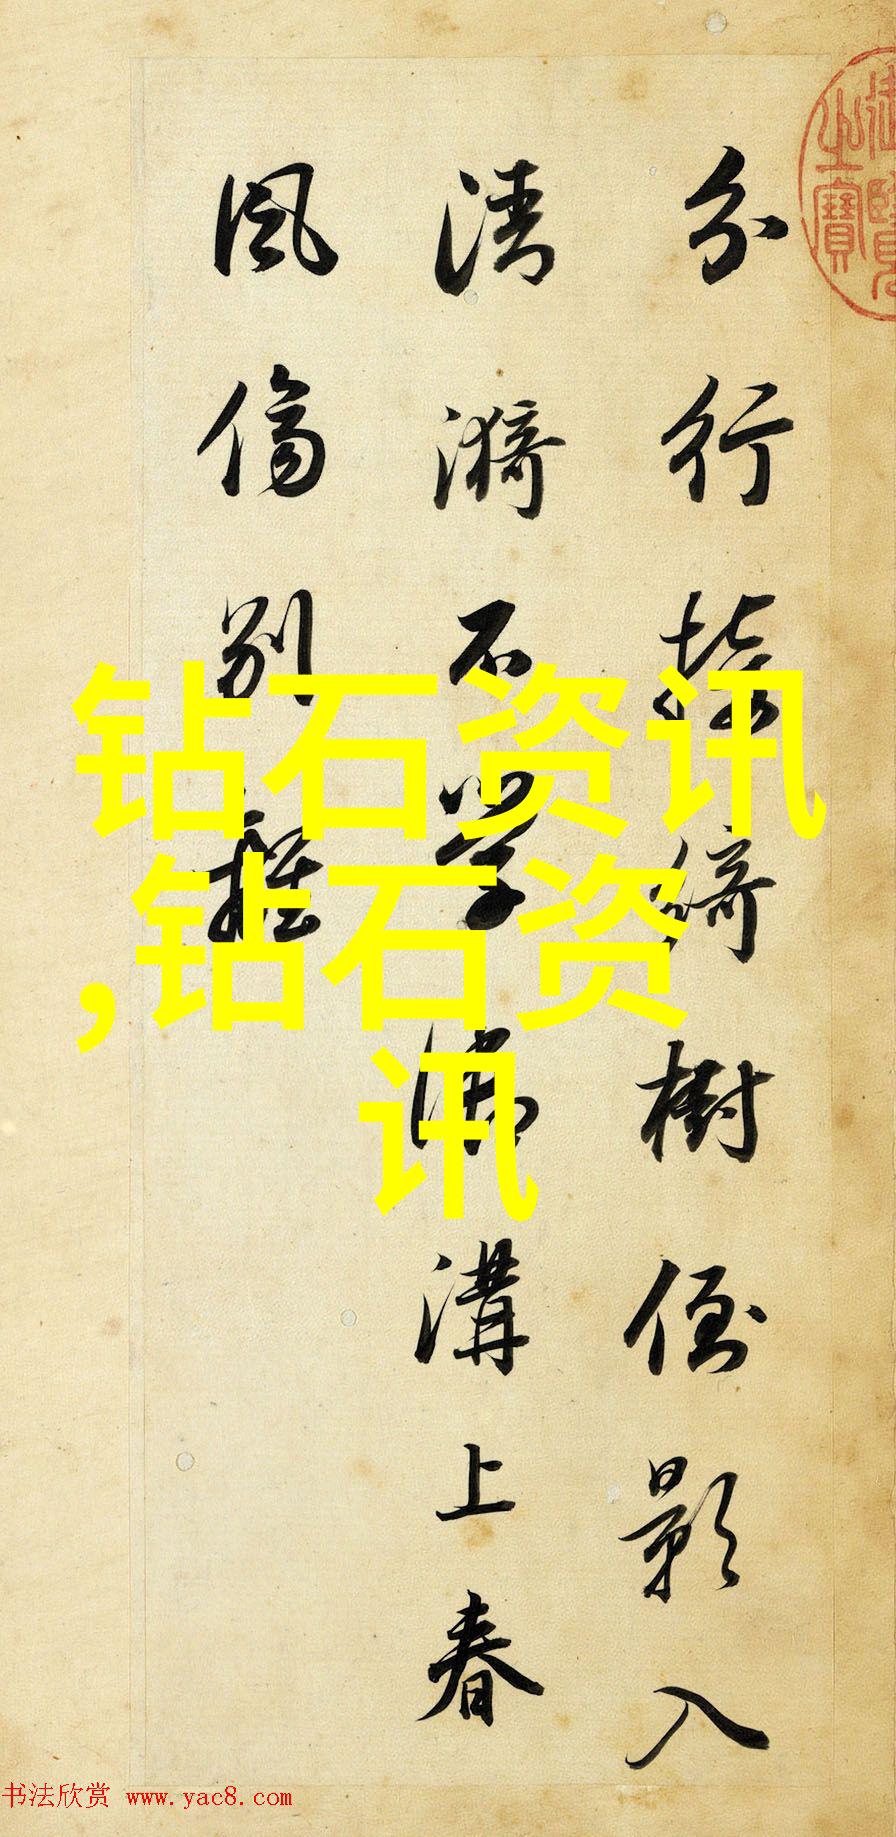 御覽
之寶
分行接綺樹倒影入
清漪不學御溝上春
風傷別離
钻石资讯
,钻石资
讯
书法欣赏 www.yac8.com